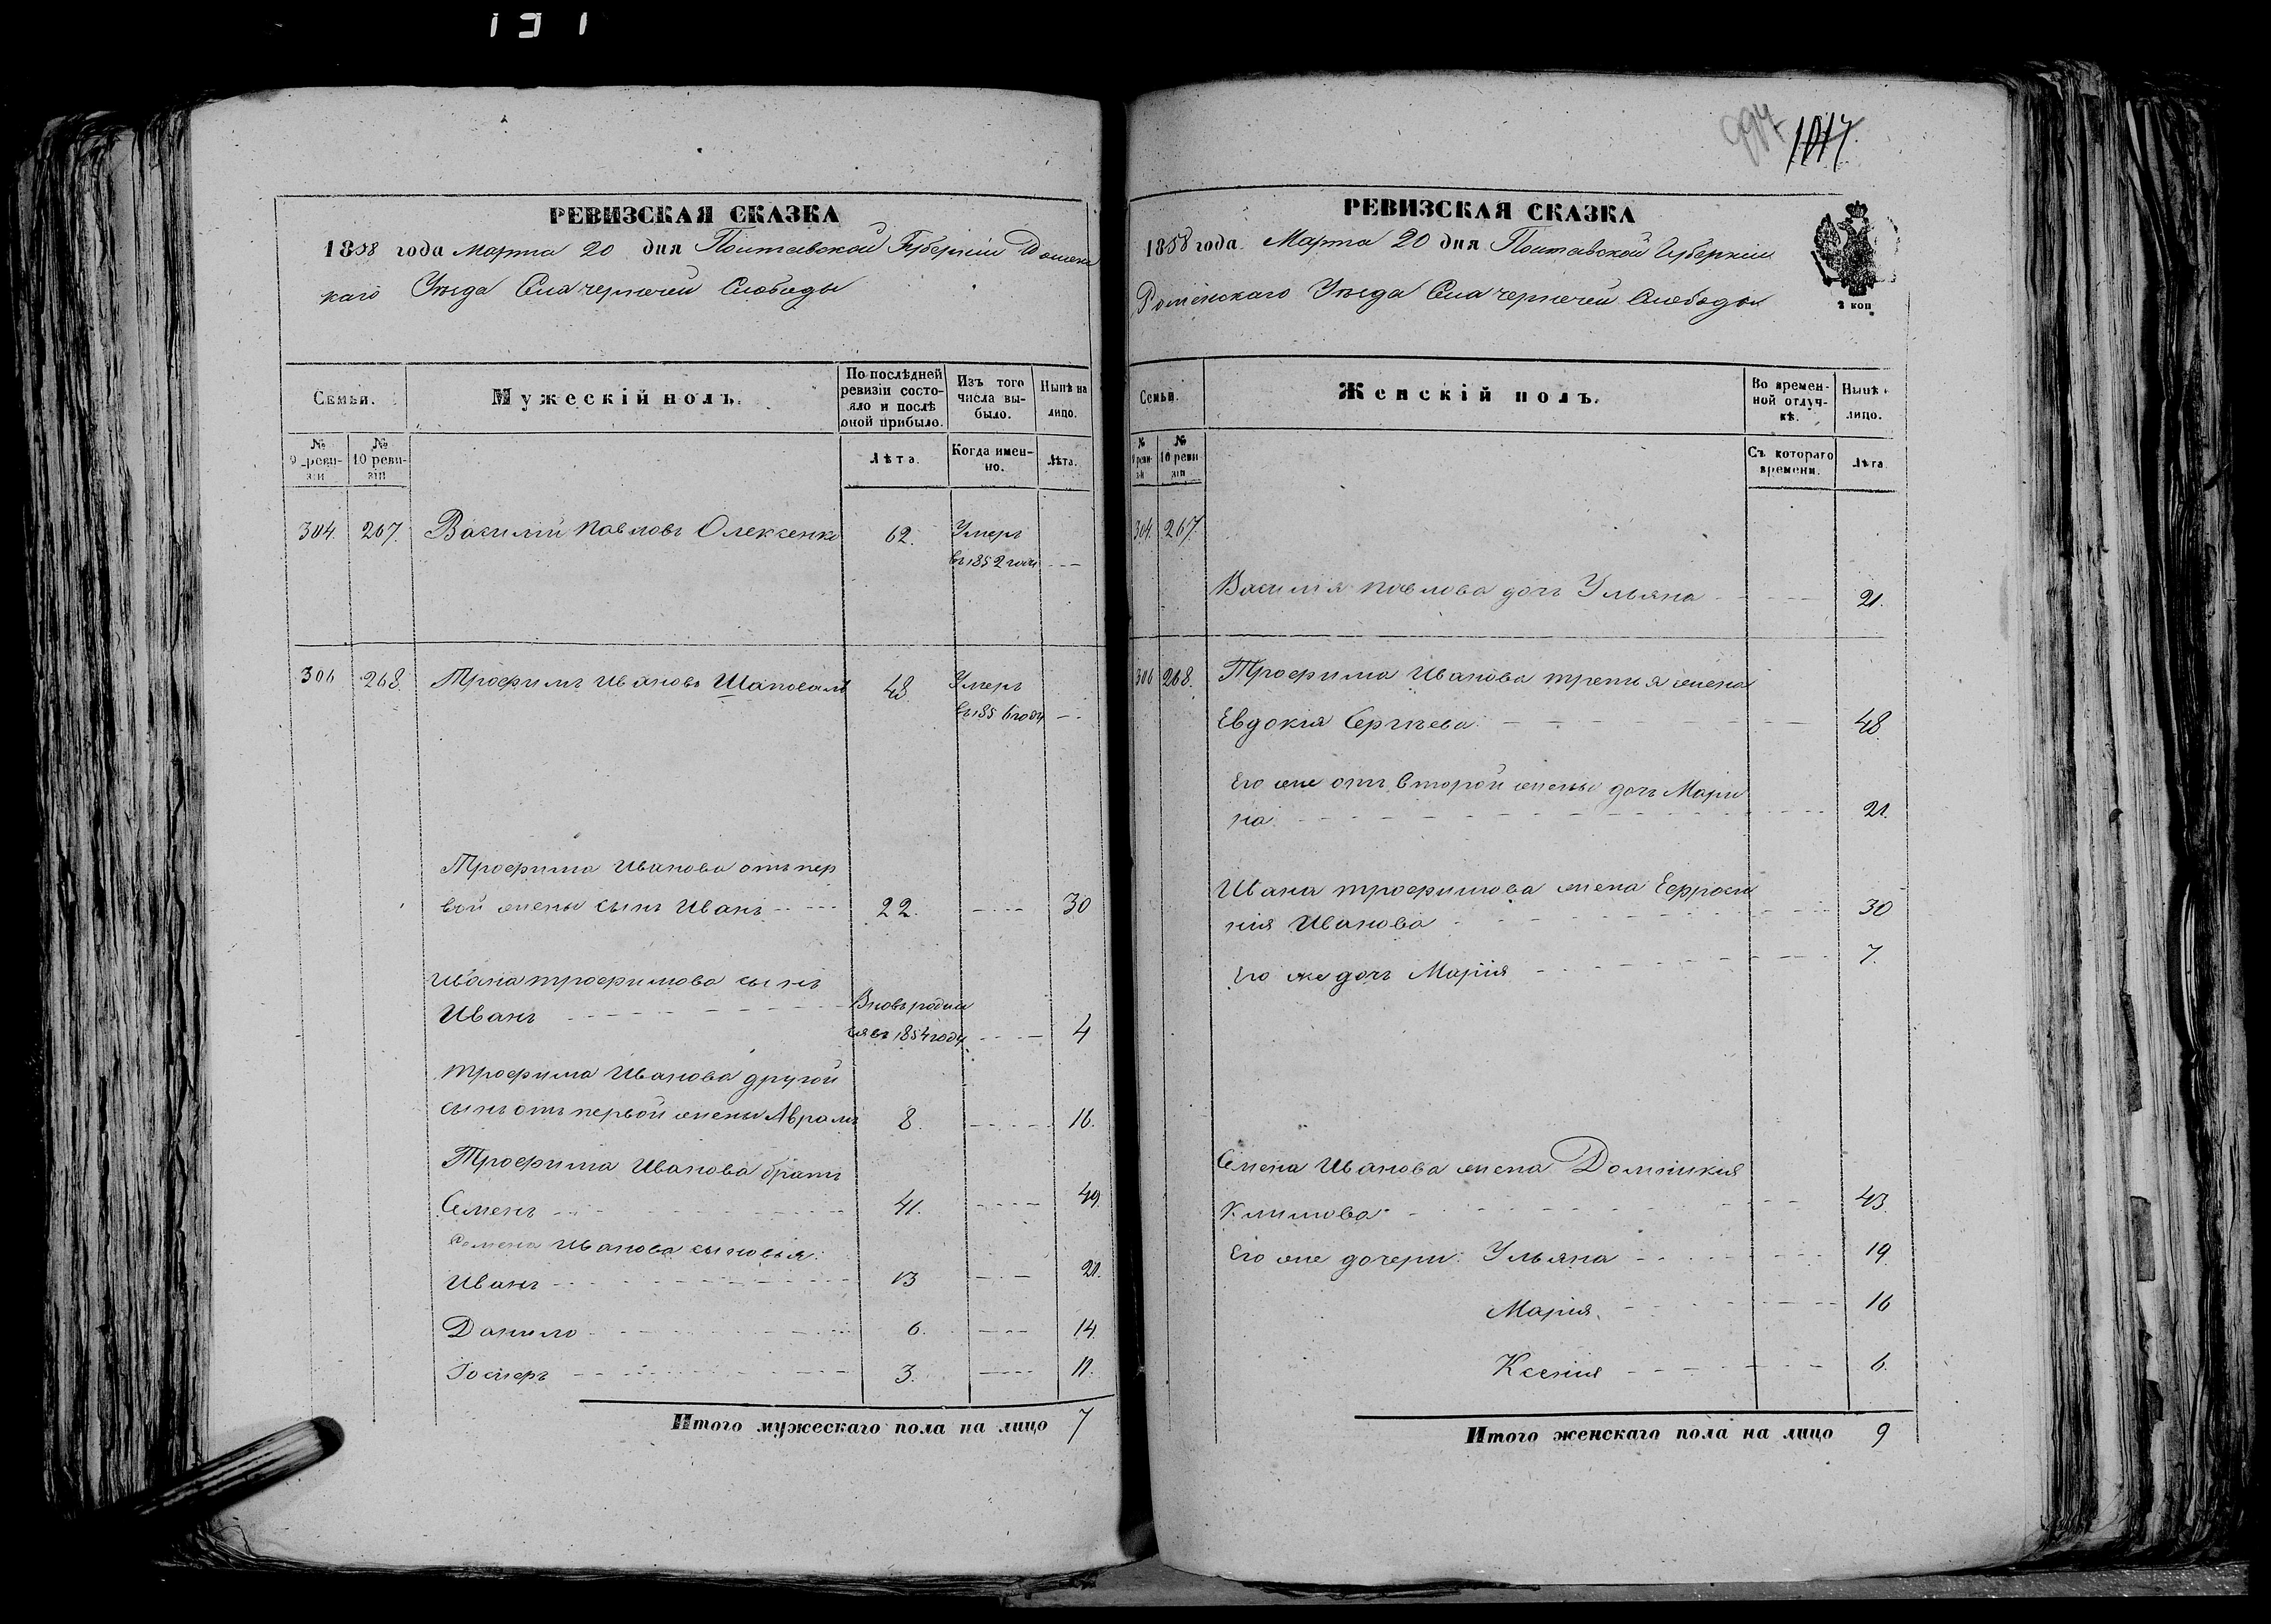 131
РЕВИЗСКАЯ СКАЗКА
1858 года Марта 20 дня Полтавской Губерніи Ромен
скаго Уезда Села Чернечей Слободы
Семьи.
Мужескій полъ.
По послѣдней ревизіи состояло и послѣ оной прибыло.
Изъ того числа выбыло.
Нынѣ на лицо.
№ 9 ревизіи
№ 10 ревизіи
Лѣта.
Когда именно.
Лѣта.
304. 267. Василій Павловъ Олексенко 62. Умеръ
въ 1852 годе
306 268. Трофимъ Ивановъ Шаповалъ 48. Умеръ
въ 1856 году
Трофима Иванова отъ пер
вой жены сынъ Иванъ 22. 30
Ивана Трофимова сынъ
Иванъ Вновь родил
ся въ 1854 году 4
Трофима Иванова другой
сынъ отъ первой жены Аврамъ 8. 16.
Трофима Иванова братъ
Семенъ 41. 49.
Семена Иванова сыновья:
Иванъ 13 21.
Данило 6. 14.
3. 11.
Итого мужескаго пола на лицо 7
994 1017
РЕВИЗСКАЯ СКАЗКА
1858 года Марта 20 дня Полтавской Губерніи
Роменскаго Уезда Села Чернечей Слободы
2 коп.
Семьи.
Женскій полъ.
Во временной отлучкѣ.
Нынѣ лицо.
№ 9 ревизіи
№ 10 ревизіи
Съ котораго времени.
Лѣта.
304. 267.
Василія Павлова дочь Ульяна 21.
306 268. Трофима Иванова третья жена
Евдокія Сергѣева 48.
Его же отъ второй жены дочь Мари
на 21.
Ивана Трофимова жена Ефроси
нія Иванова 30
Его же дочь Марія 7.
Семена Иванова жена Домникія
Климова 43.
Его же дочери: Ульяна 19.
Марія 16
Ксенія 6.
Итого женскаго пола на лицо 9